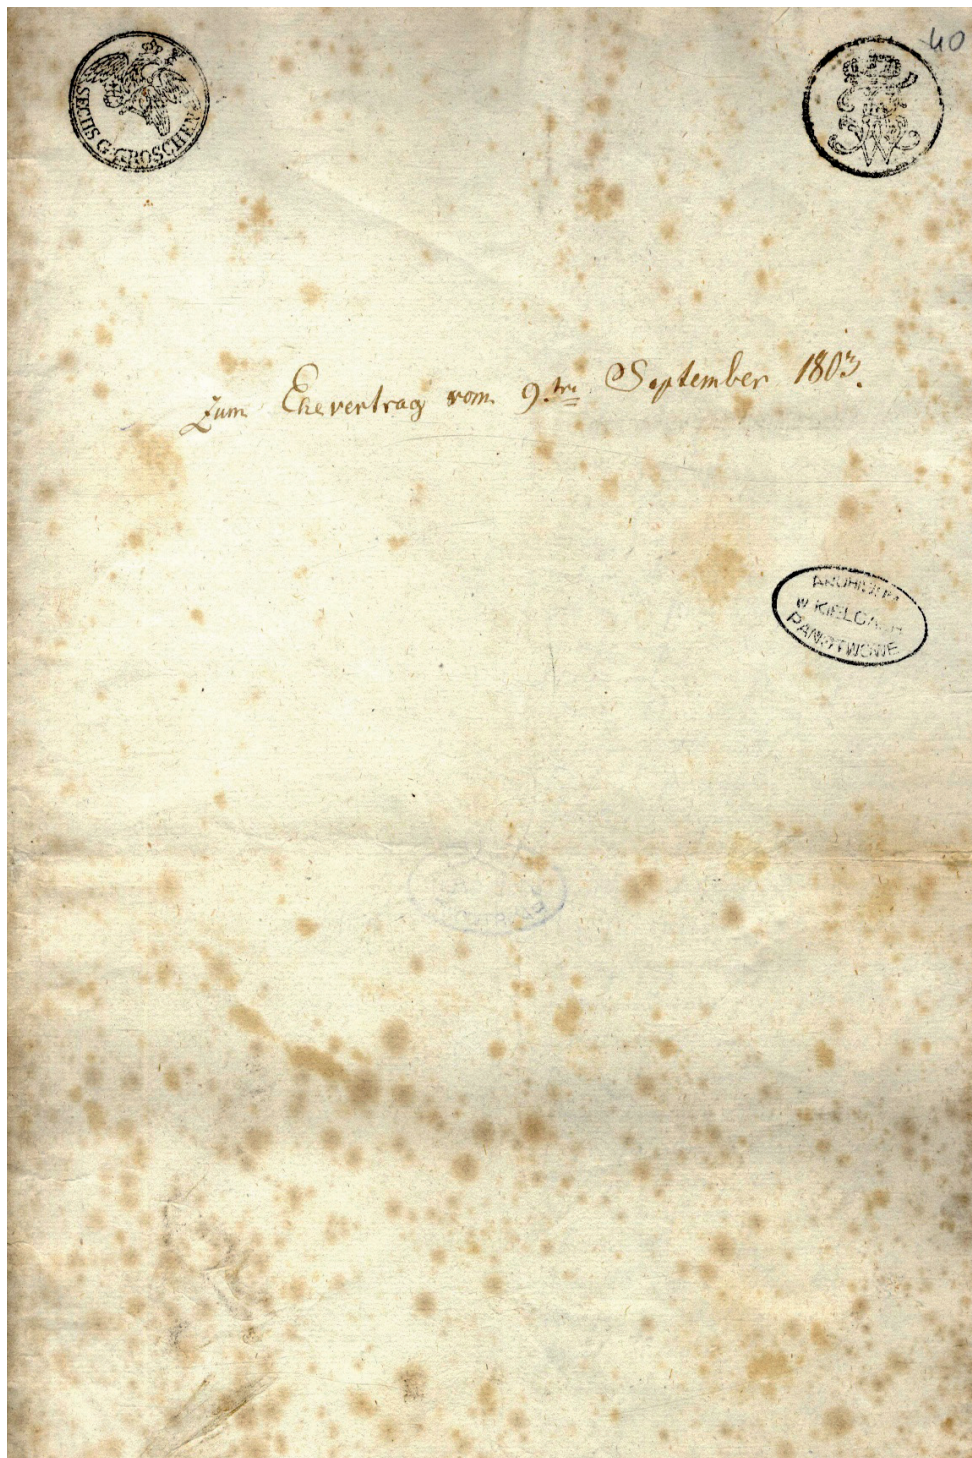 SECHS G. GROSCHEN
40
Zum Ehevertrag vom 9.ten September 1803.
ARCHIWUM
w KIELCACH
PAŃSTWOWE